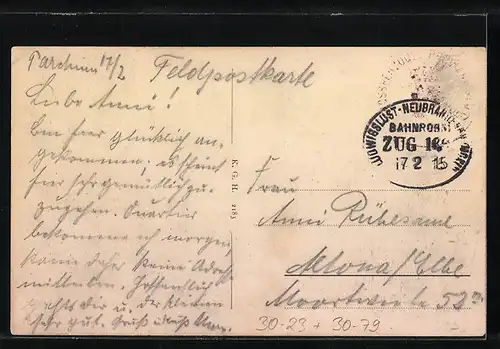 Parchim 17/2
Feldpostkarte
Liebe Anni!
Bin hier glücklich an-
gekommen; es scheint
hier sehr gemütlich zu-
zugehen. Quartier
bekomme ich morgen,
kann daher keine Adresse
mitteilen. Hoffentlich
geht's dir u. der kleinen
sehr gut. Gruß u. Kuß
K. G. H. 2183
LUDWIGSLUST-NEUBRANDENBURG
BAHNPOST
ZUG
17 2 15
Frau
Anni Rühesamt
Altona/Elbe
Moortwiete 52
30-23 + 30-79